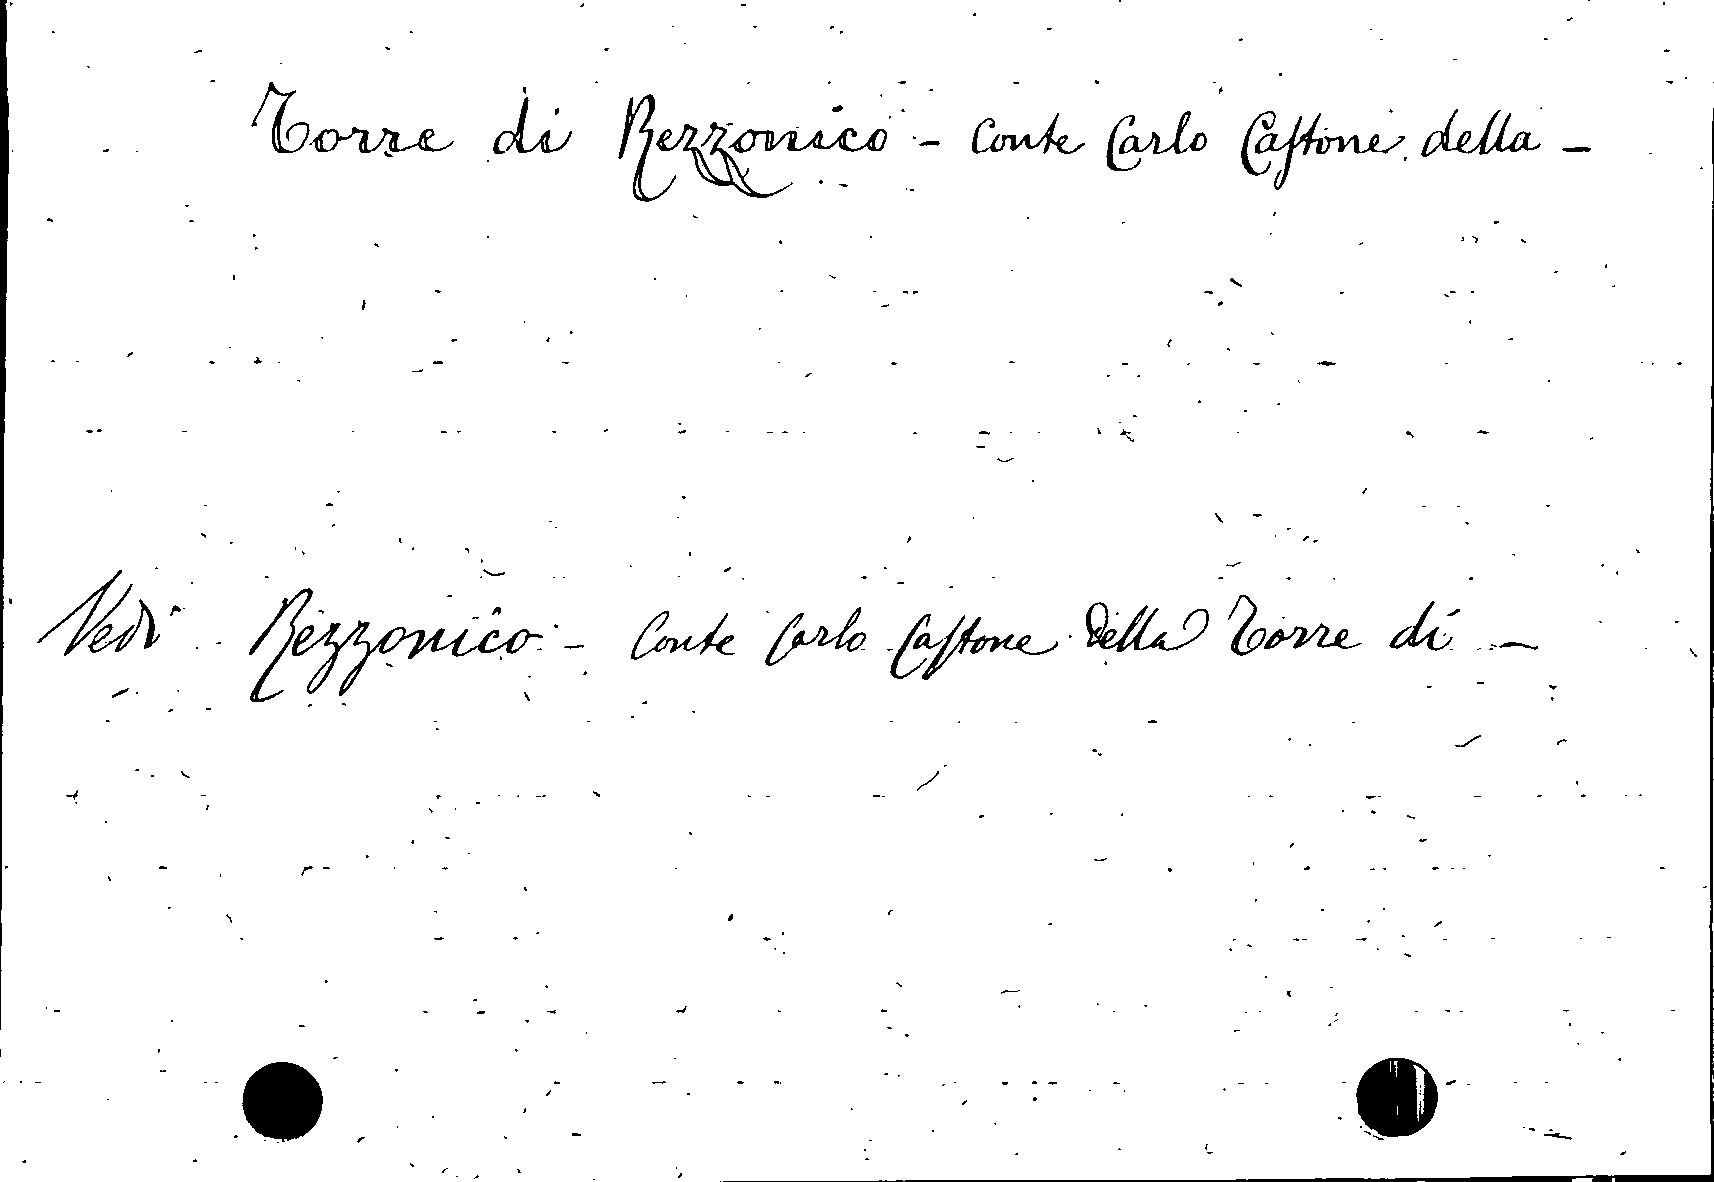 Torre di Rezzonico - Conte Carlo Caſtone della -
Vedi Rezzonico - Conte Carlo Caſtone della Torre di -